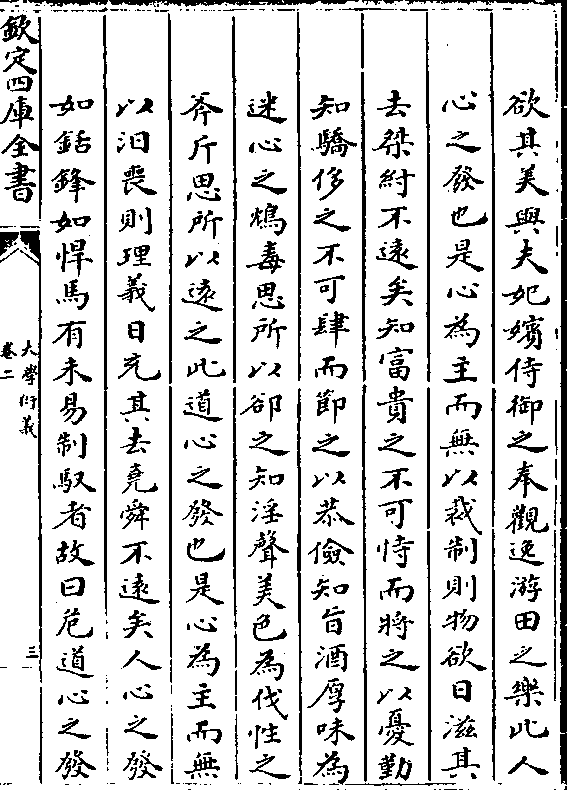 欲其美與夫妃嬪侍御之奉觀逸游田之樂此人
心之發也是心為主而無以裁制則物欲日滋其
去桀紂不遠矣知富貴之不可恃而將之以憂勤
知驕侈之不可肆而節之以恭儉知旨酒厚味為
迷心之鴆毒思所以卻之知淫聲美色為伐性之
斧斤思所以遠之此道心之發也是心為主而無
以汩喪則理義日充其去堯舜不遠矣人心之發
如銛鋒如悍馬有未易制馭者故曰危道心之發
欽定四庫全書
大學衍義
卷二
三